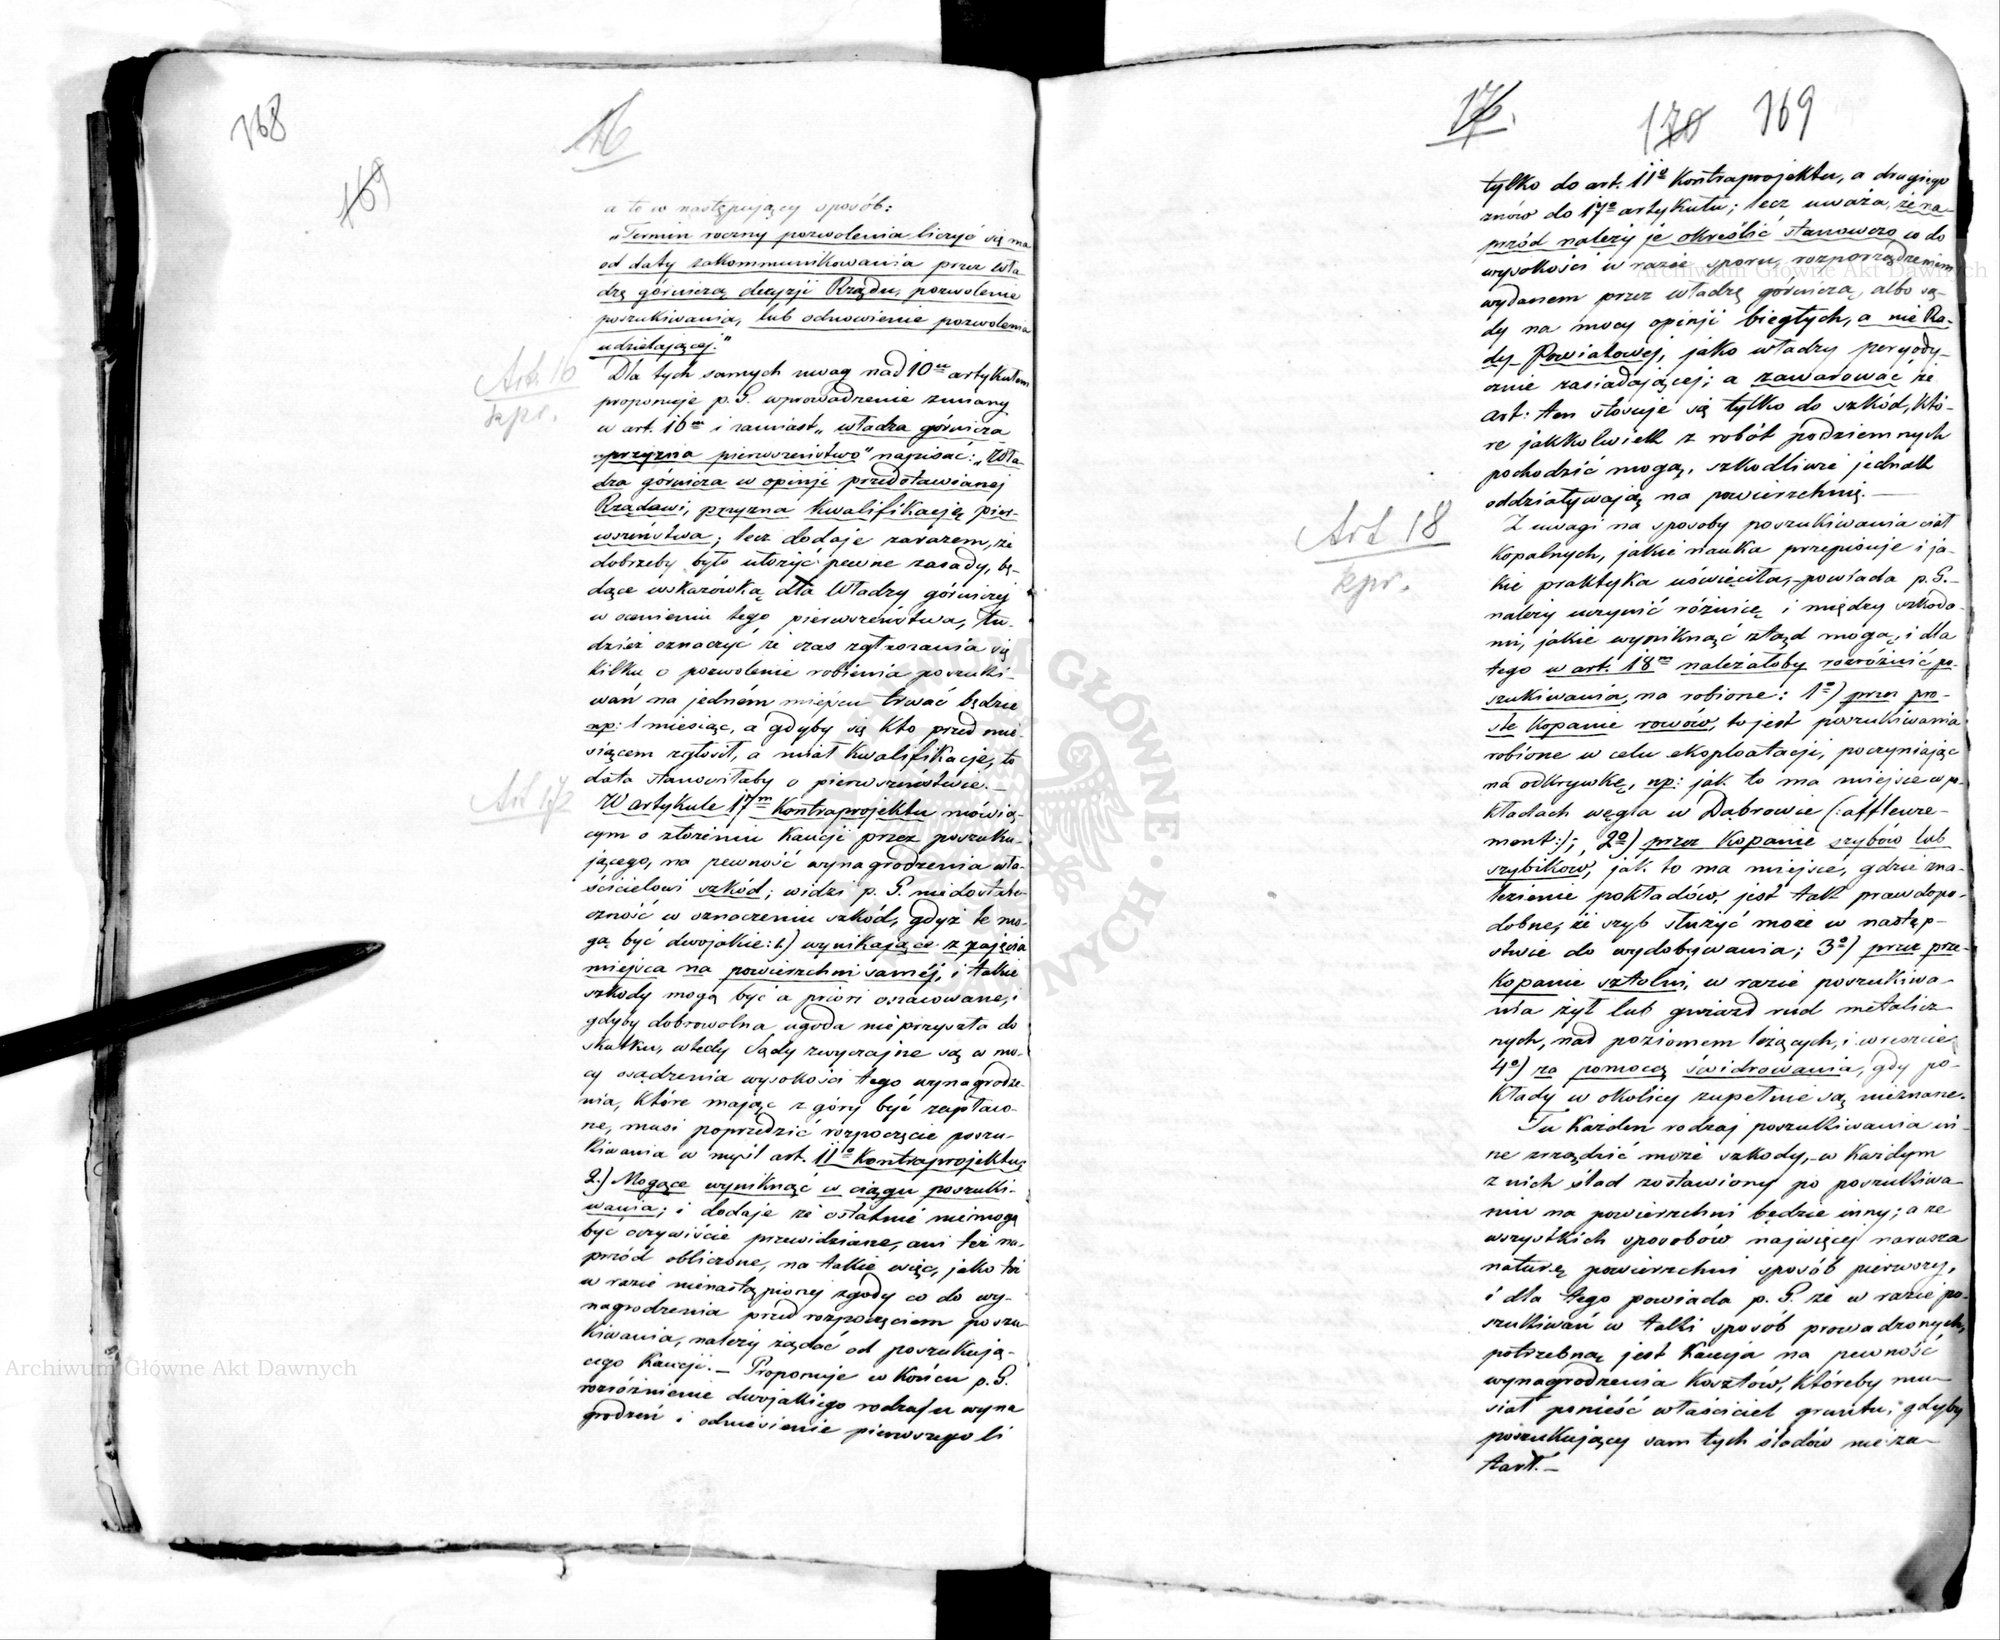 168
169
16
a to w następujący sposób:
„Termin roczny pozwolenia liczyć się ma
od daty zakommunikowania przez Wła-
dzę górniczą decyzji Rządu, pozwolenie
poszukiwania, lub odnowienie pozwolenia
udzielającej."
Art 16
kpr.
Dla tych samych uwag nad 10m artykułem
proponuje p. G. wprowadzenie zmiany
w art. 16m i zamiast „władza górnicza
przyzna pierwszeństwo" napisać: „Wła-
dza górnicza w opinji przedstawianej
Rządowi, przyzna kwalifikacją pier-
wszeństwa; lecz dodaje zarazem, że
dobrzeby było ułożyć pewne zasady, bę-
dące wskazówką dla Władzy górniczej
w ocenieniu tego pierwszeństwa, tu-
dzież oznaczyć że czas zgłaszania się
kilku o pozwolenie robienia poszuki-
wań na jedném miejscu trwać będzie
np: 1 miesiąc, a gdyby się kto przed mie-
siącem zgłosił, a miał kwalifikacje, to
data stanowiłaby o pierwszeństwie.—
Art 17
W artykule 17m Kontraprojektu mówią-
cym o złożeniu Kaucji przez poszuku-
jącego, na pewność wynagrodzenia wła-
ścicielowi szkód; widzi p. G. niedostate-
czność w oznaczeniu szkód, gdyż te mo-
gą być dwojakie: 1) wynikające z zajęcia
miejsca na powierzchni saméj, i takie
szkody mogą być a priori oszacowane, i
gdyby dobrowolna ugoda nie przyszła do
skutku, wtedy Sądy zwyczajne są w mo-
cy osądzenia wysokości tego wynagrodze-
nia, które mając z góry być zapłaco-
ne, musi poprzedzić rozpoczęcie poszu-
kiwania w myśl art. 11o Kontraprojektu;
2.) Mogące wyniknąć w ciągu poszuki-
wania; i dodaje że ostatnie nie mogą
być oczywiście przewidziane, ani też na-
przód obliczone, na takie więc, jako też
w razie nienastąpionej zgody co do wy-
nagrodzenia przed rozpoczęciem poszu-
kiwania, należy żądać od poszukują-
cego Kaucji.— Proponuje w końcu p. G.
rozróżnienie dwojakiego rodzaju wyna
grodzeń i odniesienie pierwszego li
17.
170 169
tylko do art. 11o Kontraprojektu, a drugiego
znów do 17o artykułu; lecz uważa, że na-
przód należy je określić stanowczo co do
wysokości w razie sporu, rozporządzeniem
wydanem przez władzę górniczą, albo są-
dy na mocy opinji biegłych, a nie Ra-
dy Powiatowej, jako władzy peryody-
cznie zasiadającej; a zawarować że
art: ten stosuje się tylko do szkód, któ-
re jakkolwiek z robót podziemnych
pochodzić mogą, szkodliwie jednak
oddziaływają na powierzchnię.—
Art 18
kpr.
Z uwagi na sposoby poszukiwania ciał
kopalnych, jakie nauka przepisuje i ja-
kie praktyka uświęciła,—powiada p. G.—
należy uczynić różnicę i między szkoda-
mi, jakie wyniknąć ztąd mogą, i dla
tego w art. 18m należałoby rozróżnić po-
szukiwania, na robione: 1o) przez pro-
ste kopanie rowów, to jest poszukiwania
robione w celu eksploatacji, poczynając
na odkrywkę, np: jak to ma miejsce w po-
kładach węgla w Dąbrowie (:affleure-
ment:); 2o) przez kopanie szybów lub
szybików, jak to ma miejsce, gdzie zna-
lezienie pokładów, jest tak prawdopo-
dobne, że szyb służyć może w następ-
stwie do wydobywania; 3o) przez prze-
kopanie sztolni, w razie poszukiwa-
nia żył lub gniazd rud metalicz-
nych, nad poziomem leżących, i wreszcie
4o) za pomocą świdrowania, gdy po-
kłady w okolicy zupełnie są nieznane.
Tu każden rodzaj poszukiwania in-
ne zrządzić może szkody,—w każdym
z nich ślad zostawiony po poszukiwa-
niu na powierzchni będzie inny; a ze
wszystkich sposobów najwięcej narusza
naturę powierzchni sposób pierwszy,
i dla tego powiada p. G. że w razie po-
szukiwań w taki sposób prowadzonych,
potrzebną jest Kaucja na pewność
wynagrodzenia kosztów, któreby mu-
siał ponieść właściciel gruntu, gdyby
poszukujący sam tych śladów nie za-
tarł.—
Archiwum Główne Akt Dawnych
Archiwum Główne Akt Dawnych
ARCHIWUM GŁÓWNE AKT DAWNYCH